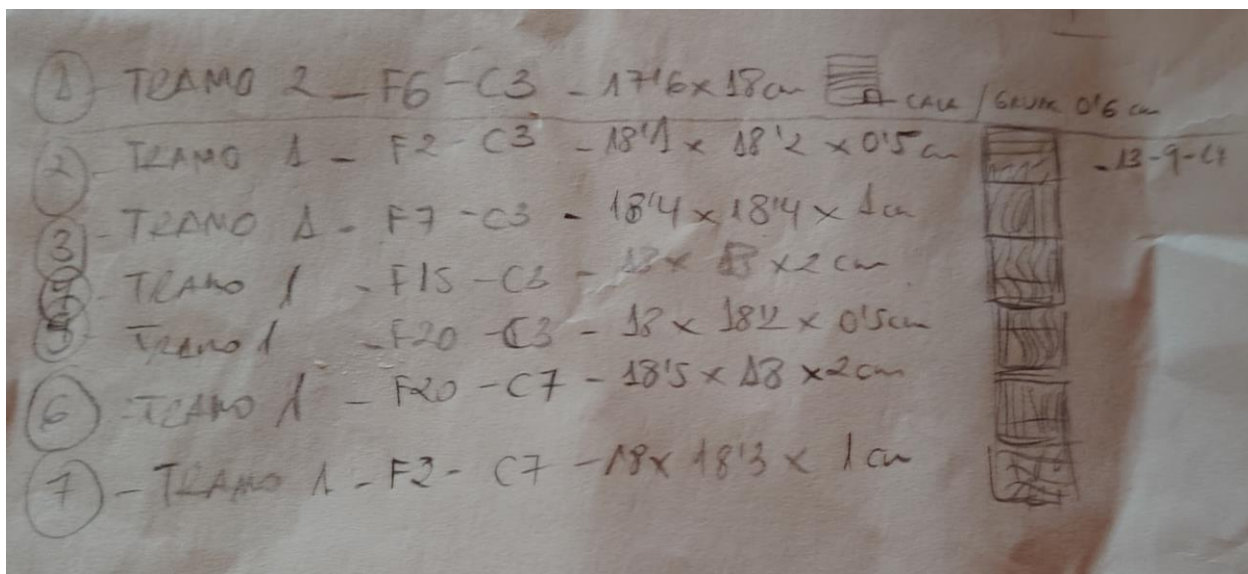 1 - TRAMO 2 - F6 - C3 - 17'6 x 18 cm CALA / GRUM 0'6 cm
2 - TRAMO 1 - F2 - C3 - 18'1 x 18'2 x 0'5 cm - 13-9-
3 - TRAMO 1 - F7 - C3 - 18'4 x 18'4 x 1 cm
4 - TRAMO 1 - F15 - C3 - 18 x 18 x 2 cm
5 TRAMO 1 - F20 - C3 - 18 x 18'2 x 0'5 cm
6 - TRAMO 1 - F20 - C7 - 18'5 x 18 x 2 cm
7 - TRAMO 1 - F2 - C7 - 18 x 18'3 x 1 cm